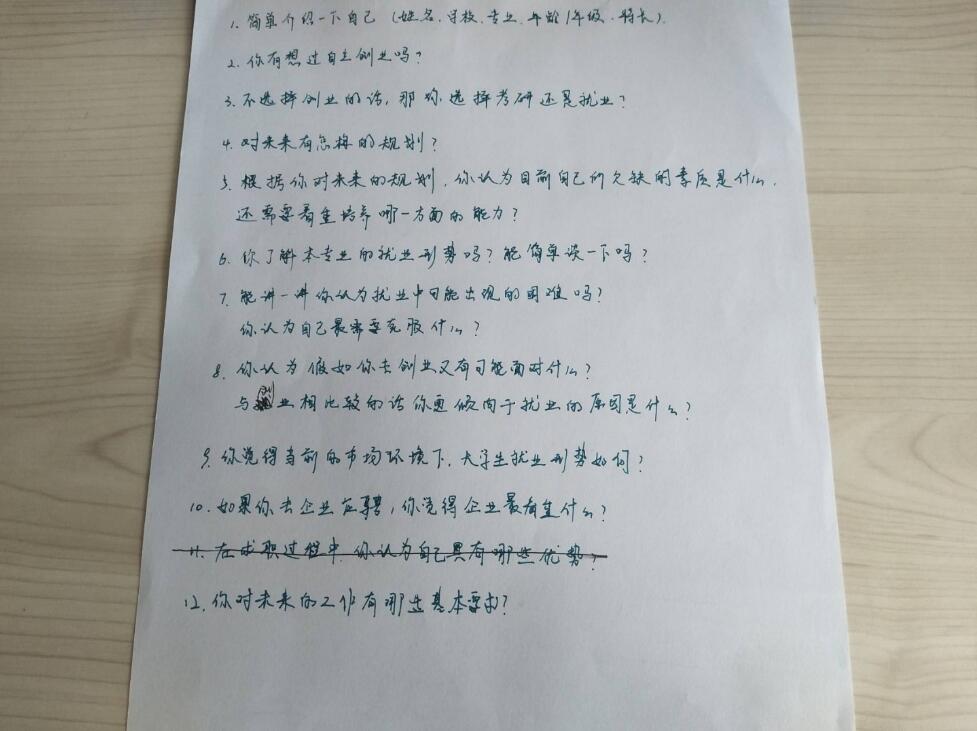 1. 简单介绍一下自己 (姓名、学校、专业、年龄/年级、特长).
2. 你有想过自主创业吗?
3. 不选择创业的话, 那你选择考研还是就业?
4. 对未来有怎样的规划?
5. 根据你对未来的规划, 你认为目前自己所欠缺的素质是什么,
还需要着重培养哪一方面的能力?
6. 你了解本专业的就业形势吗? 能简单谈一下吗?
7. 能讲一讲你认为就业中可能出现的困难吗?
你认为自己最需要克服什么?
8. 你认为假如你去创业又有可能面对什么?
与创业相比较的话你更倾向于就业的原因是什么?
9. 你觉得当前的市场环境下, 大学生就业形势如何?
10. 如果你去企业应聘, 你觉得企业最看重什么?
11. 在求职过程中, 你认为自己具有哪些优势?
12. 你对未来的工作有哪些基本要求?